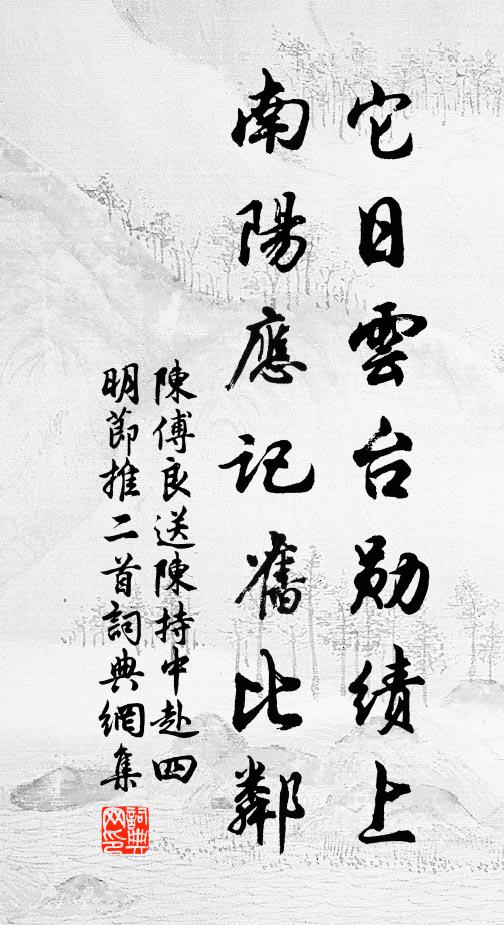 它日雲台勋绩上
南陽應記舊比鄰
陳傅良送陳持中赴四
明節推二首詞典網集
詞典网印